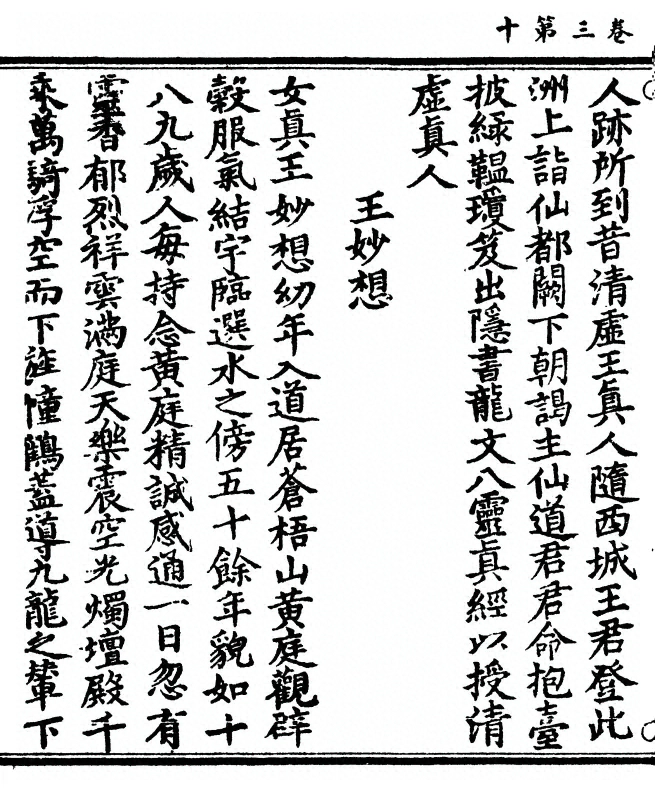 卷三第十
人跡所到昔清虛王眞人隨西城王君登此
洲上詣仙都闕下朝謁主仙道君君命抱臺
披綠韞瓊笈出隱書龍文八靈眞經以授清
虛眞人
王妙想
女眞王妙想幼年入道居蒼梧山黄庭觀辟
穀服氣結宇臨選水之傍五十餘年貌如十
八九歲人每持念黄庭精誠感通一日忽有
靈香郁烈祥雲滿庭天樂震空光燭壇殿千
乘萬騎浮空而下旌幢鶴蓋導九龍之輦下